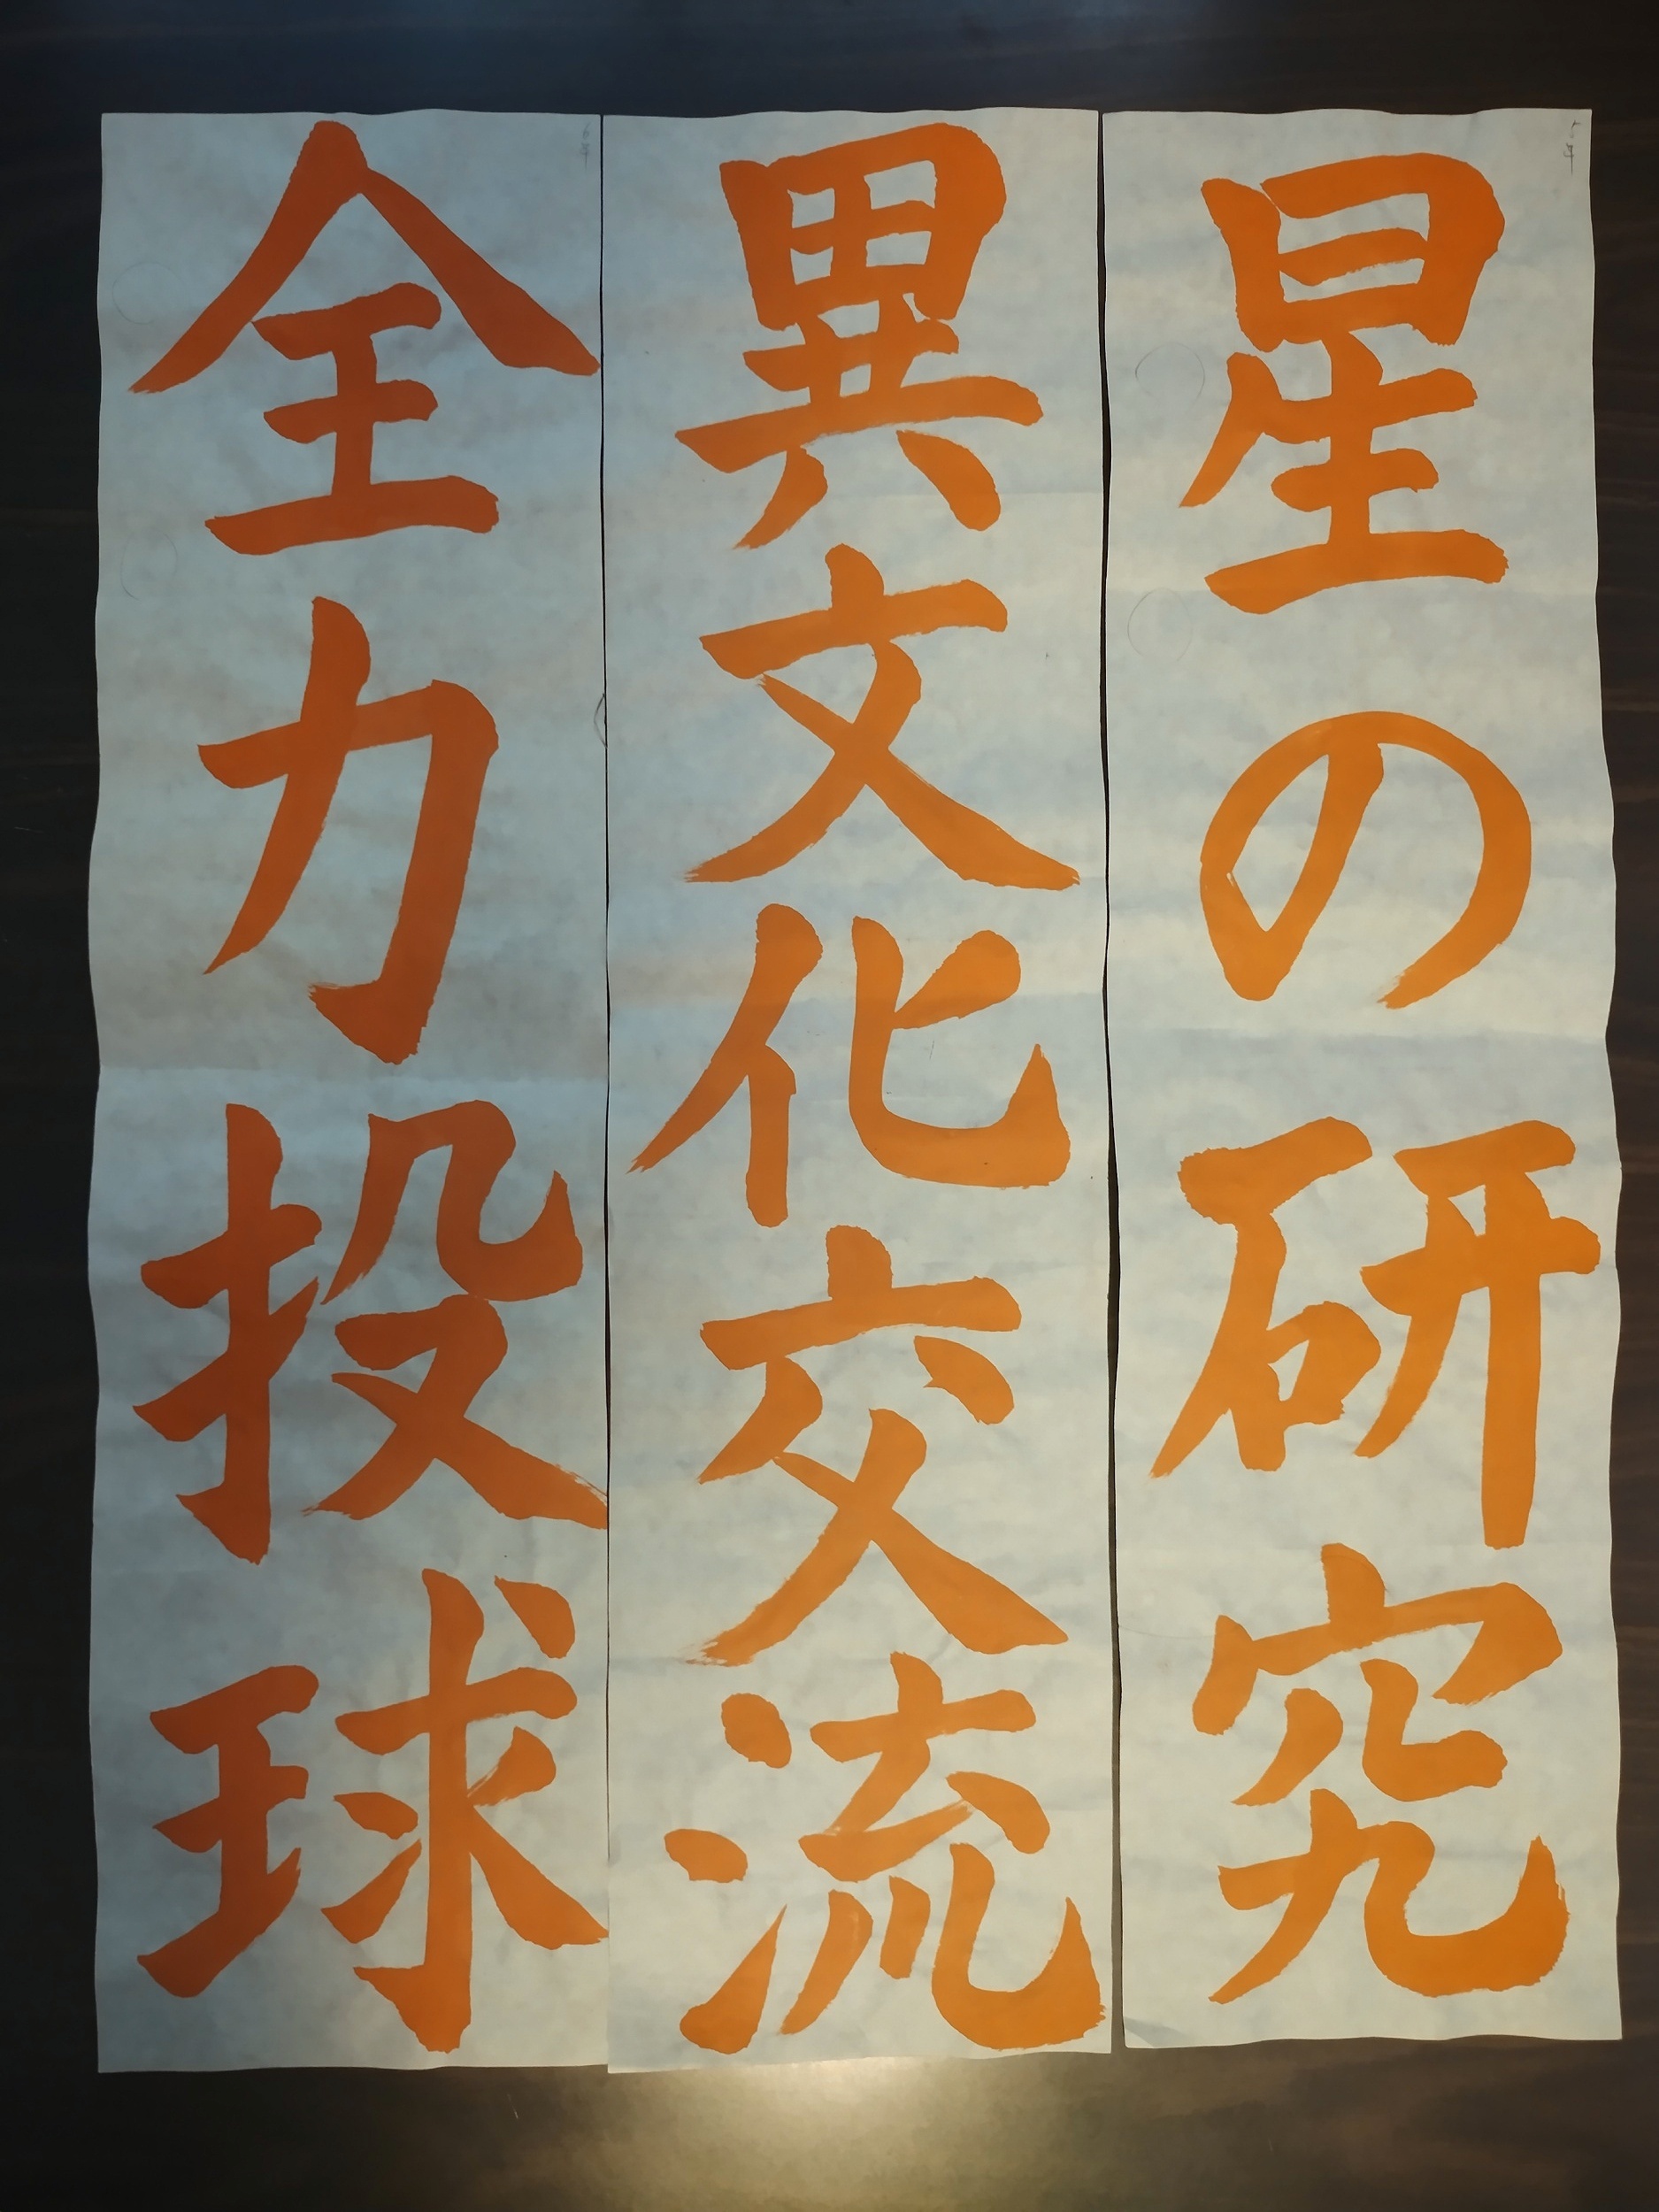 星の研究
異文化交流
全力投球